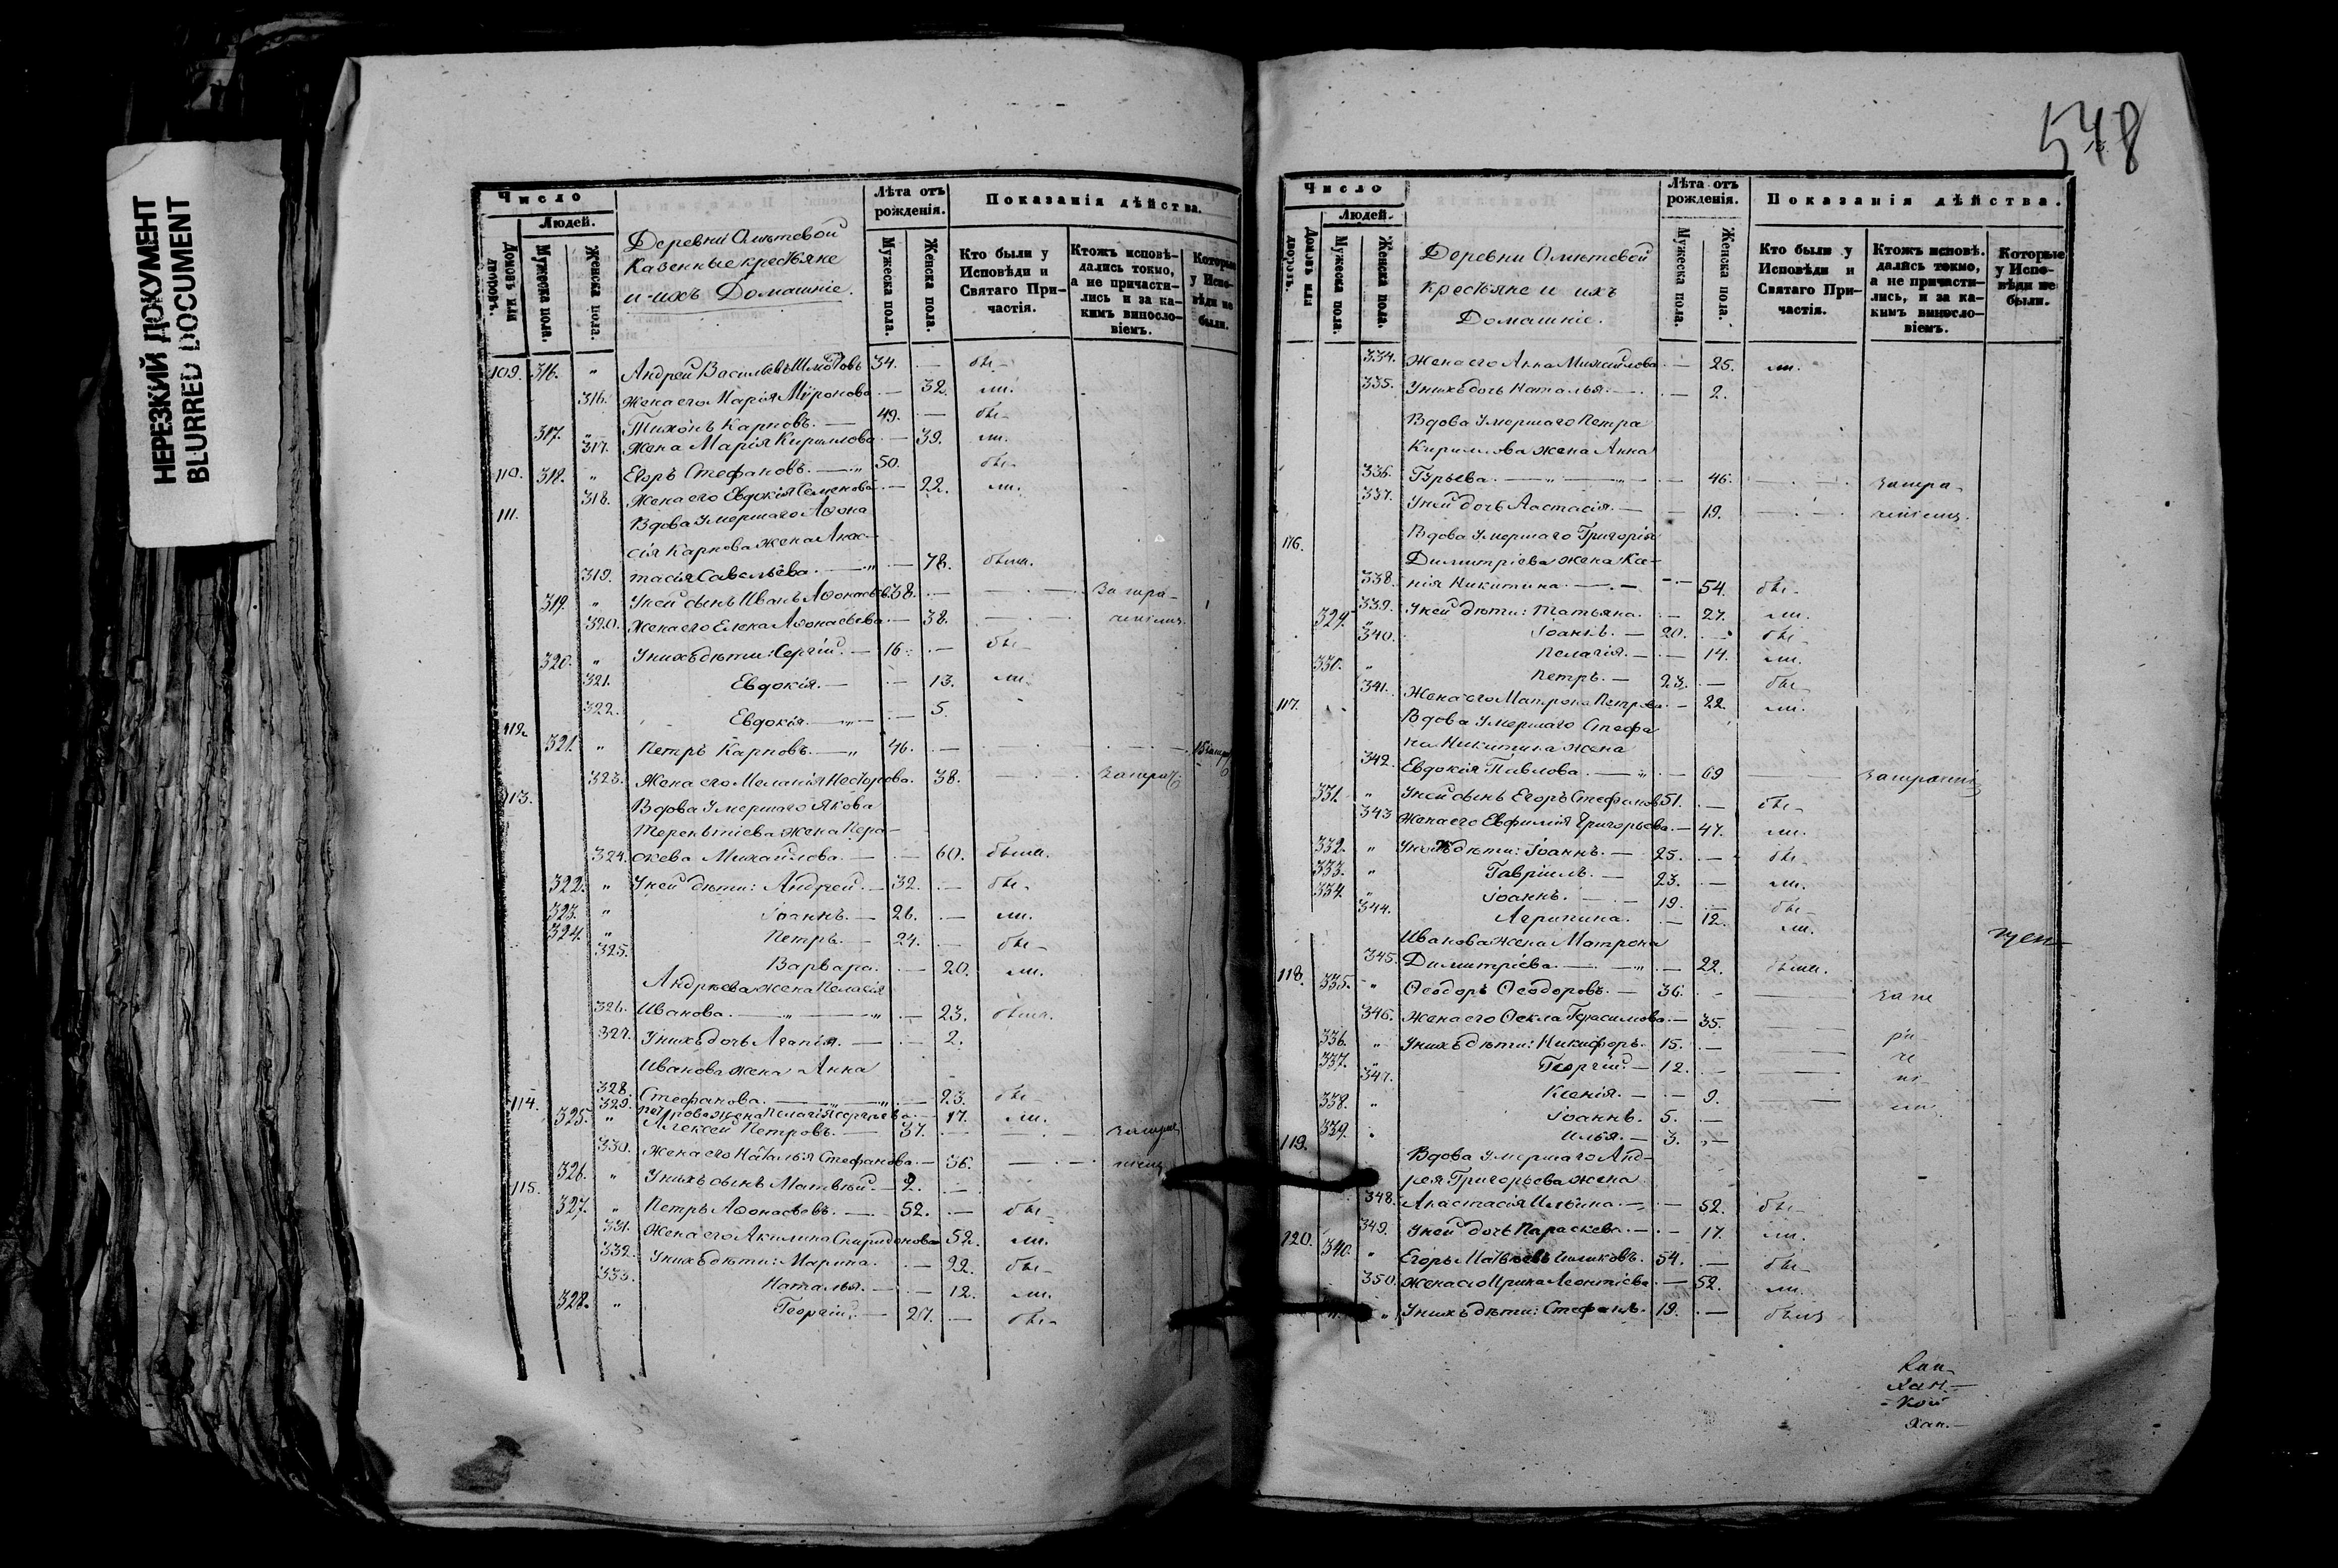 НЕРЕЗКИЙ ДОКУМЕНТ
BLURRED DOCUMENT
Число
Людей.
Домовъ или дворовъ.
Мужеска пола.
Женска пола.
Деревни
Казенные крестьяне
и ихъ Домашніе.
Лѣта отъ рожденія.
Мужеска пола.
Женска пола.
Показанія дѣйства.
Кто были у Исповѣди и Святаго При-
частія.
Ктожъ исповѣ-
дались токмо,
а не причасти-
лись и за ка-
кимъ винosло-
віемъ.
Которые
у Испо-
вѣди не
были.
109. 316. " Андрей Васильевъ 34. — бы-
316. Жена его Марія Мѵронова — 32. ли.
317. " Тихонъ Карповъ. — 49. — бы-
317. Жена Марія Кириллова — 39. ли.
110. 318. " Егоръ Стефановъ. — " 50. бы-
318. Жена его Евдокія Семенова — 22. ли.
111. Вдова Умершаго Аѳона
сія Карпова жена Анас-
319. тасія Савельева. — " — 78. была.
319. " У ней сынъ Иванъ Аѳонасьев. 38. —
320. Жена его Елена Аѳонасьева — 38.
320. " У нихъ дѣти: Сергій. — 16. — бы-
321. Евдокія. — — 13. ли.
322. Евдокія. — " — 5.
112. 321. " Петръ Карповъ. — " 46. —
323. Жена его Меланія Несторова. 38.
113. Вдова Умершаго Якова
Терентіева жена Пера-
324. скева Михайлова. — — 60. была.
322. " У ней дѣти: Андрей. — 32. — бы-
323. " Іоаннъ. — 26. — ли.
324. " Петръ. — 24. — бы-
325. Варвара. — 20. ли.
Андреева жена Пелагія
326. Иванова. — " — " — 23. была.
327. У нихъ дочь Агапія. — — 2.
Иванова жена Анна
328. Стефанова. — " — 23. бы-
329. Петрова жена Пелагія — 17. ли.
114. 325. " Алексей Петровъ. — 37. —
330. Жена его Наталья Стефанова. — 36.
326. " У нихъ сынъ Матвѣй. — 2. —
115. 327. " Петръ Аѳонасьевъ. — 52. — бы-
331. Жена его Акилина Спиридонова 52. ли.
332. У нихъ дѣти: Марина. — 22. бы-
333. Наталья. — — 12. ли.
328. " Георгій. — 20. — бы-
548
Число
Людей.
Домовъ или дворовъ.
Мужеска пола.
Женска пола.
Деревни
Крестьяне и ихъ
Домашніе.
Лѣта отъ рожденія.
Мужеска пола.
Женска пола.
Показанія дѣйства.
Кто были у
Исповѣди и
Святаго При-
частія.
Ктожъ исповѣ-
дались токмо,
а не причасти-
лись, и за ка-
кимъ винosло-
віемъ.
Которые
у Испо-
вѣди не
были.
334. Жена его Анна Михайлова — 25. ли.
335. У нихъ дочь Наталья. — — 2.
Вдова Умершаго Петра
Кириллова жена Анна
336. Гурьева. — " — " — 46.
337. У ней дочь Анастасія. — — 19.
116. Вдова Умершаго Григорія
Димитріева жена Ксе-
338. нія Никитина. — — 54. бы-
339. У ней дѣти: Татьяна. — 27. ли.
329. " Іоаннъ. — 20. — бы-
340. Пелагія. — — 14. ли.
330. " Петръ. — 23. — бы-
341. Жена его Матрона Петрова. — 22. ли.
117. Вдова Умершаго Стефа
на Никитина жена
342. Евдокія Павлова. — " — 69
331. " У ней сынъ Егоръ Стефанов 51. — бы-
343 Жена его Евфимія Григорьева. — 47. ли.
332. " У нихъ дѣти: Іоаннъ. — 25. — бы-
333. " Гавріилъ. — 23. — ли.
334. " Іоаннъ. — 19. — бы-
344. Агрипина. — 12. ли.
Иванова жена Матрона
345. Димитріева. — " — 22. была.
118. 335. " Ѳеодоръ Ѳеодоровъ. — 36. —
346. Жена его Ѳекла Герасимова. — 35.
336. " У нихъ дѣти: Никифоръ. 15. —
337. " Георгій. — 12. —
347. Ксенія. — — 9.
338. " Іоаннъ. 5. —
339. " Илья. — 3. —
119. Вдова Умершаго Анд-
рея Григорьева жена
348. Анастасія Ильина. — — 52. бы-
349. У ней дочь Параскева. — — 17. ли.
120. 340. " Егоръ 54. — бы-
350. Жена его Ирина Леонтіева. — 52. ли.
" У нихъ дѣти: Стефанъ. 19. — былъ